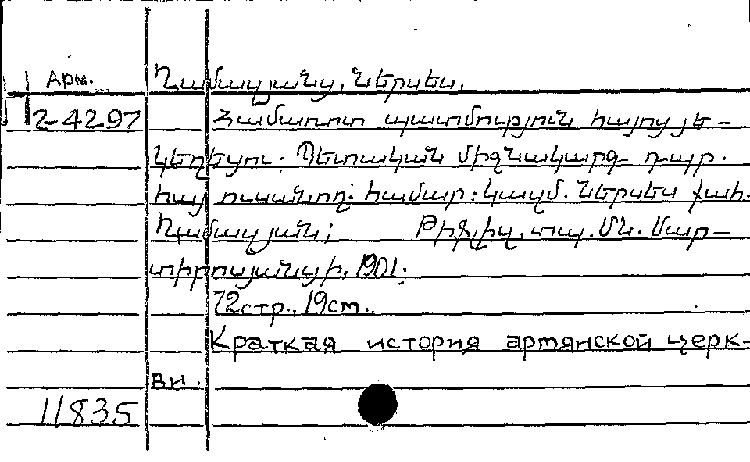 Арм. Ղամազյանց, Ներսես.
2-4297 Համառոտ պատմություն հայոց եե-
կեղեցու. Պետական միջնակարգ դպր.
հայ ուսանող. համար: կազմ. Ներսես քահ.
Ղամազյան; Թիֆլիզ, տպ. Մն. Մար-
տիրոսյանցի, 1901.
72стр., 19см.
Краткая история армянской церк-
ви.
11835